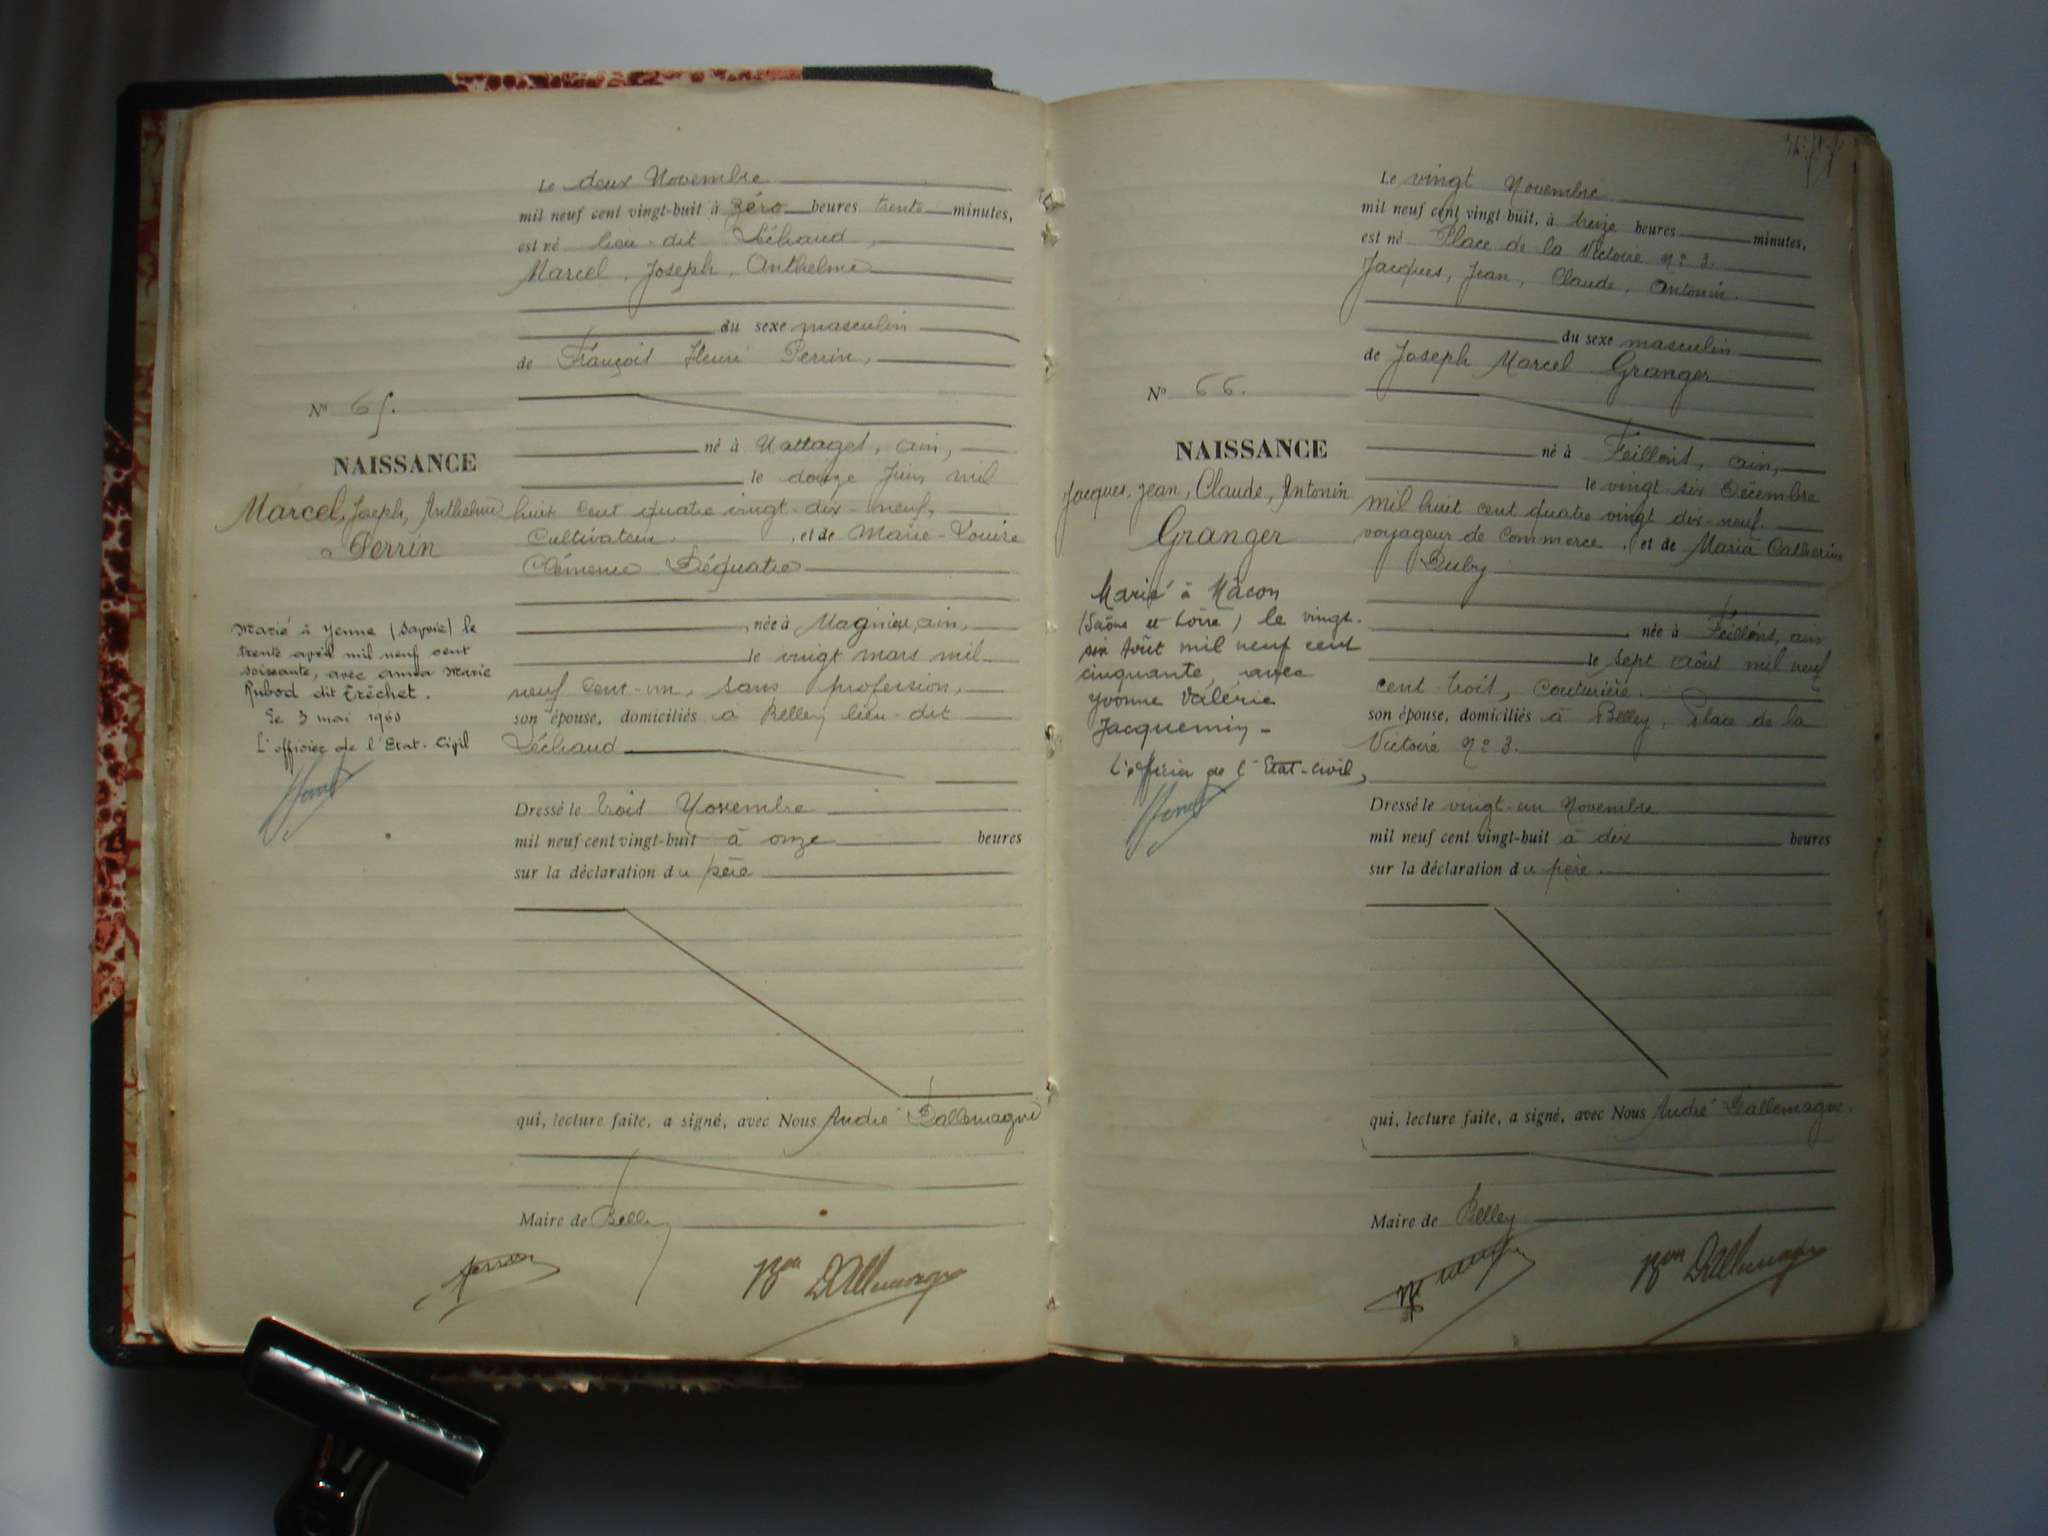 Le deux Novembre
mil neuf cent vingt-huit à zéro heures trente minutes,
est né lieu-dit Léchaud,
Marcel, Joseph, Anthelme
du sexe masculin
de François Henri Perrin,
N° 65.
né à Nattages, ain,
NAISSANCE
le douze Juin mil
Marcel, Joseph, Anthelme
huit cent quatre vingt-dix-neuf,
Perrin
Cultivateur, et de Marie-Louise
Clémence
née à Magnieu, ain,
le vingt mars mil
neuf cent-un, sans profession,
son épouse, domiciliés à Belley lieu-dit
Léchaud
Marié à Yenne (Savoie) le
trente avril mil neuf cent
soixante, avec Anna Marie
Rubod dit Tréchet.
Le 3 mai 1960
L'officier de l'Etat-Civil
Dressé le trois Novembre
mil neuf cent vingt-huit à onze heures
sur la déclaration du père
qui, lecture faite, a signé, avec Nous André Dallemagne
Maire de Belley
Perrin
Bon Dallemagne
Le vingt Novembre
mil neuf cent vingt-huit, à treize heures minutes,
est né Place de la Victoire n° 3
Jacques, Jean, Claude, Antonin.
du sexe masculin
de Joseph Marcel Granger
N° 66.
né à Feillens, ain,
NAISSANCE
le vingt-six Décembre
Jacques, Jean, Claude, Antonin
mil huit cent quatre vingt dix-neuf.
Granger
voyageur de commerce, et de Maria Catherine
Duby
née à Feillens, ain
le sept août mil neuf
cent trois, couturière.
son épouse, domiciliés à Belley, Place de la
Victoire n° 3.
Marié à Mâcon
(Saône et Loire) le vingt-
six Août mil neuf cent
cinquante, avec
Yvonne Valérie
Jacquemin -
L'officier de l'Etat-Civil,
Dressé le vingt-un Novembre
mil neuf cent vingt-huit à dix heures
sur la déclaration du père
qui, lecture faite, a signé, avec Nous André Dallemagne.
Maire de Belley
Bon Dallemagne